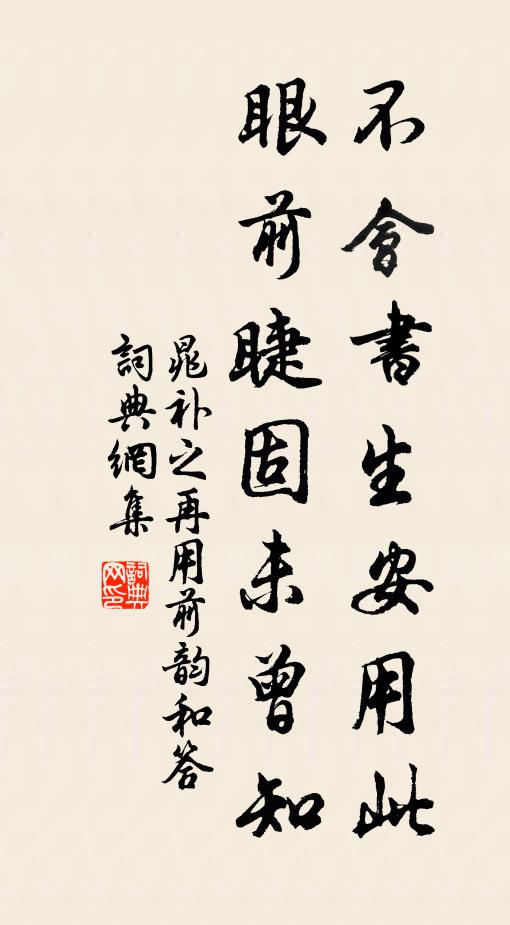 不會書生安用此
眼前睫固未曾知
晁补之再用前韵和答
詞典網集
詞典
网印